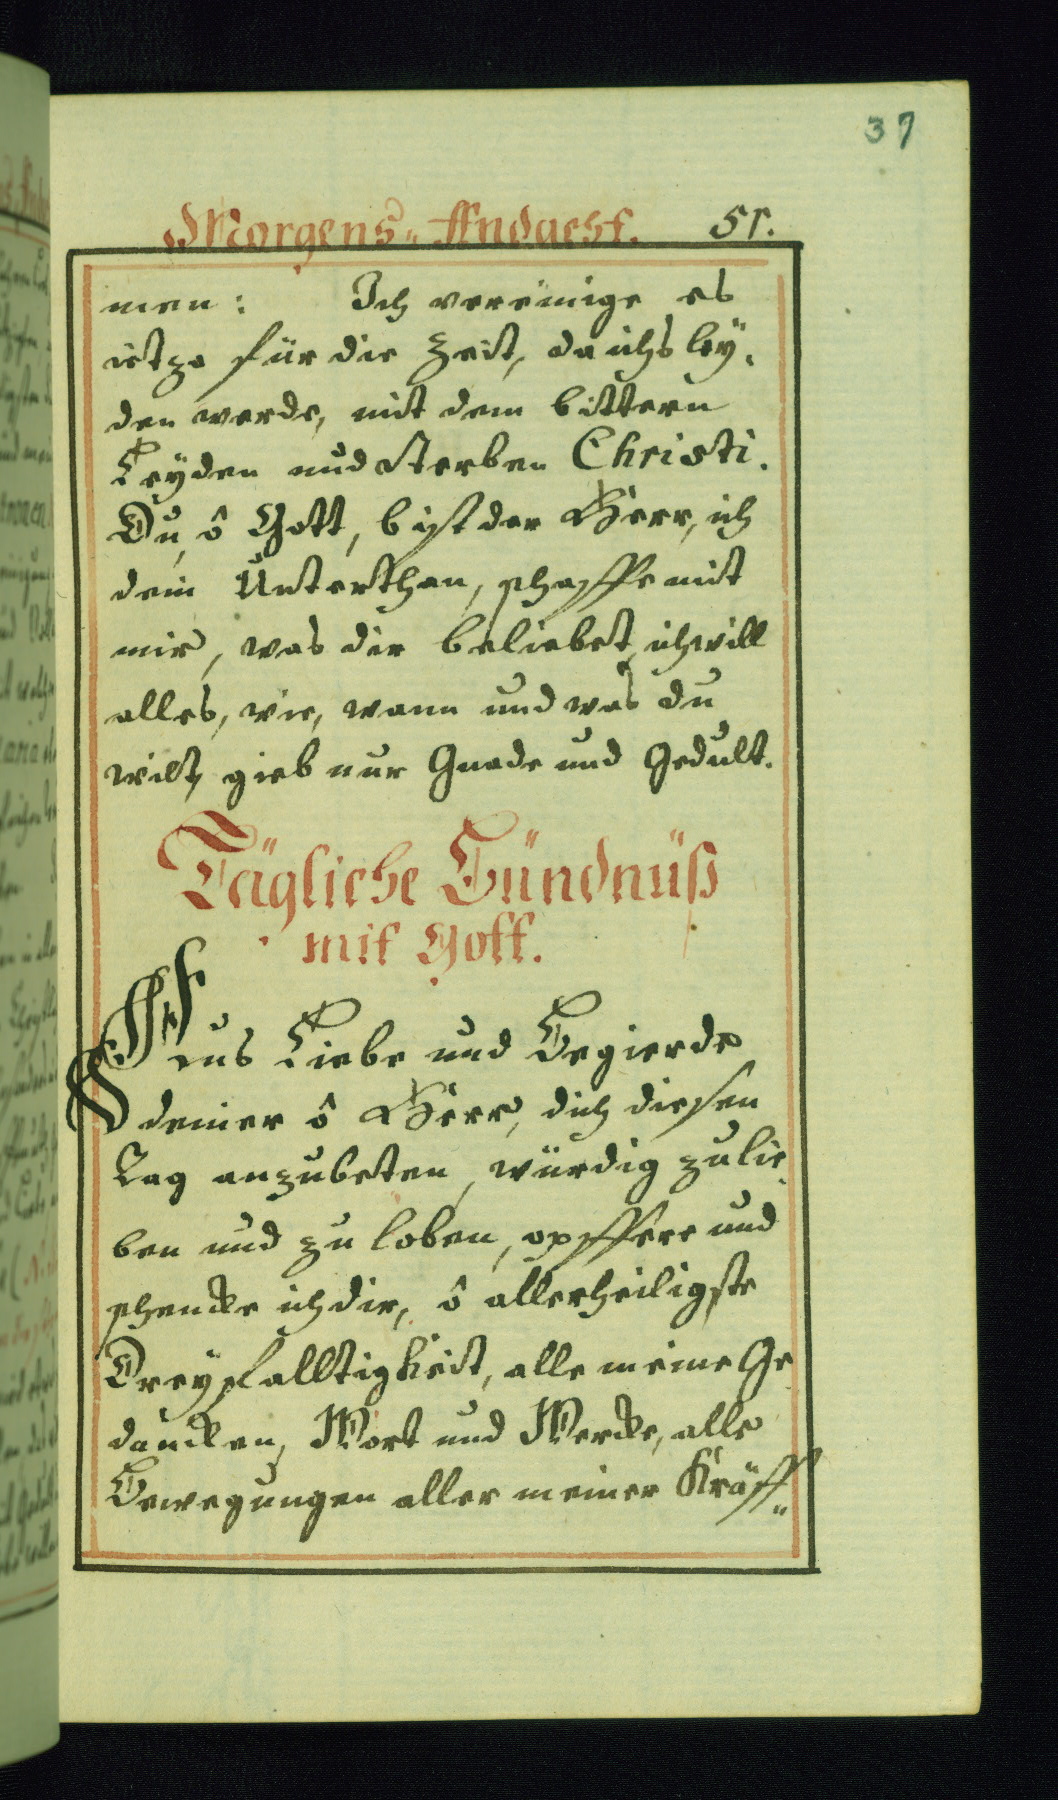 37
Morgens-Andacht. 51.
men: Ich vereinige es
ietzo für die Zeit, da ichs ley-
den werde, mit dem bittern
Leyden und Sterben Christi.
Du, ô Gott, bist der Herr, ich
dein Unterthan, schaffe mit
mir, was dir beliebet, ich will
alles, wie, wann und was du
wilt, gieb nur Gnade und Gedult.
Tägliche Bündnüß
mit Gott.
Aus Liebe und Begierde
deiner ô Herr, dich diesen
Tag anzubeten, würdig zu lie-
ben und zu loben, opffere und
schencke ich dir, ô allerheiligste
Dreyfalltigkeit, alle meine Ge-
dancken, Wort und Wercke, alle
Bewegungen aller meiner Kräff-